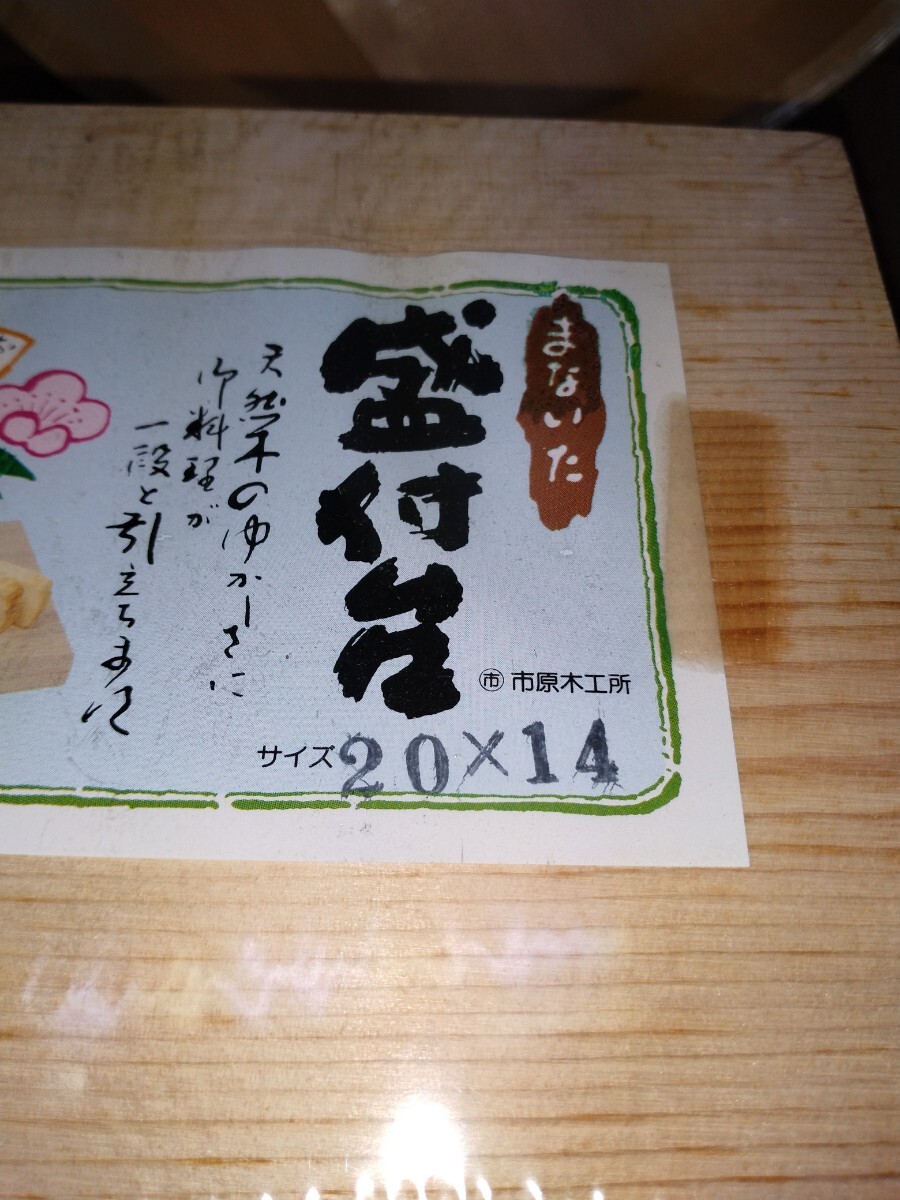 まないた
盛付台
天然木のゆかしさに
御料理が
一段と引立ちます
市 市原木工所
サイズ 20×14